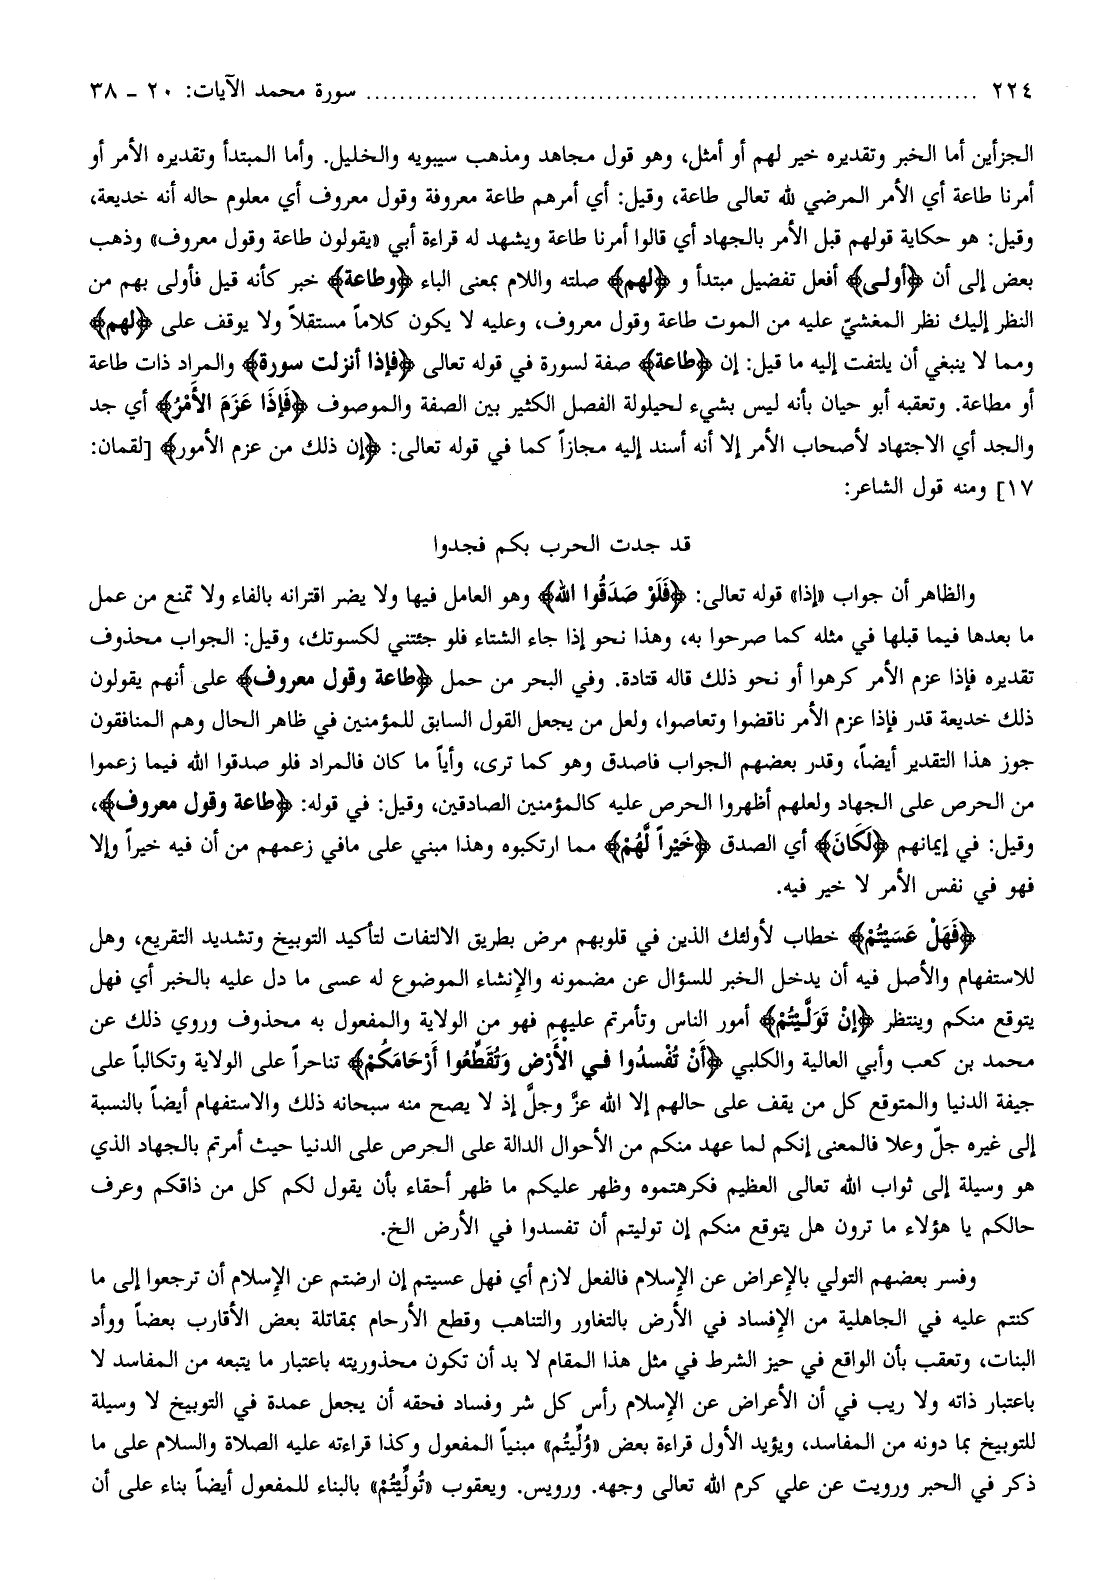 ٢٢٤ ........................................................................... سورة محمد الآيات: ٢٠ - ٣٨
الجزأين أما الخبر وتقديره خير لهم أو أمثل، وهو قول مجاهد ومذهب سيبويه والخليل. وأما المبتدأ وتقديره الأمر أو
أمرنا طاعة أي الأمر المرضي لله تعالى طاعة، وقيل: أي أمرهم طاعة معروفة وقول معروف أي معلوم حاله أنه خديعة،
وقيل: هو حكاية قولهم قبل الأمر بالجهاد أي قالوا أمرنا طاعة ويشهد له قراءة أبي «يقولون طاعة وقول معروف» وذهب
بعض إلى أن ﴿أولى﴾ أفعل تفضيل مبتدأ و ﴿لهم﴾ صلته واللام بمعنى الباء ﴿وطاعة﴾ خبر كأنه قيل فأولى بهم من
النظر إليك نظر المغشيّ عليه من الموت طاعة وقول معروف، وعليه لا يكون كلاماً مستقلاً ولا يوقف على ﴿لهم﴾
ومما لا ينبغي أن يلتفت إليه ما قيل: إن ﴿طاعة﴾ صفة لسورة في قوله تعالى ﴿فإذا أنزلت سورة﴾ والمراد ذات طاعة
أو مطاعة. وتعقبه أبو حيان بأنه ليس بشيء لحيلولة الفصل الكثير بين الصفة والموصوف ﴿فَإِذَا عَزَمَ الأَمْرُ﴾ أي جد
والجد أي الاجتهاد لأصحاب الأمر إلا أنه أسند إليه مجازاً كما في قوله تعالى: ﴿إن ذلك من عزم الأمور﴾ [لقمان:
١٧] ومنه قول الشاعر:
قد جدت الحرب بكم فجدوا
والظاهر أن جواب «إذا» قوله تعالى: ﴿فَلَوْ صَدَقُوا الله﴾ وهو العامل فيها ولا يضر اقترانه بالفاء ولا تمنع من عمل
ما بعدها فيما قبلها في مثله كما صرحوا به، وهذا نحو إذا جاء الشتاء فلو جئتني لكسوتك، وقيل: الجواب محذوف
تقديره فإذا عزم الأمر كرهوا أو نحو ذلك قاله قتادة. وفي البحر من حمل ﴿طاعة وقول معروف﴾ على أنهم يقولون
ذلك خديعة قدر فإذا عزم الأمر ناقضوا وتعاصوا، ولعل من يجعل القول السابق للمؤمنين في ظاهر الحال وهم المنافقون
جوز هذا التقدير أيضاً، وقدر بعضهم الجواب فاصدق وهو كما ترى، وأياً ما كان فالمراد فلو صدقوا الله فيما زعموا
من الحرص على الجهاد ولعلهم أظهروا الحرص عليه كالمؤمنين الصادقين، وقيل: في قوله: ﴿طاعة وقول معروف﴾،
وقيل: في إيمانهم ﴿لَكَانَ﴾ أي الصدق ﴿خَيْراً لَّهُمْ﴾ مما ارتكبوه وهذا مبني على مافي زعمهم من أن فيه خيراً وإلا
فهو في نفس الأمر لا خير فيه.
﴿فَهَلْ عَسَيْتُمْ﴾ خطاب لأولئك الذين في قلوبهم مرض بطريق الالتفات لتأكيد التوبيخ وتشديد التقريع، وهل
للاستفهام والأصل فيه أن يدخل الخبر للسؤال عن مضمونه والإنشاء الموضوع له عسى ما دل عليه بالخبر أي فهل
يتوقع منكم وينتظر ﴿إنْ تَوَلَّيْتُمْ﴾ أمور الناس وتأمرتم عليهم فهو من الولاية والمفعول به محذوف وروي ذلك عن
محمد بن كعب وأبي العالية والكلبي ﴿أَنْ تُفْسدُوا فـي الأَرْض وَتُقَطِّعُوا أَرْحَامَكُمْ﴾ تناحراً على الولاية وتكالباً على
جيفة الدنيا والمتوقع كل من يقف على حالهم إلا الله عزَّ وجلَّ إذ لا يصح منه سبحانه ذلك والاستفهام أيضاً بالنسبة
إلى غيره جلّ وعلا فالمعنى إنكم لما عهد منكم من الأحوال الدالة على الحرص على الدنيا حيث أمرتم بالجهاد الذي
هو وسيلة إلى ثواب الله تعالى العظيم فكرهتموه وظهر عليكم ما ظهر أحقاء بأن يقول لكم كل من ذاقكم وعرف
حالكم يا هؤلاء ما ترون هل يتوقع منكم إن توليتم أن تفسدوا في الأرض الخ.
وفسر بعضهم التولي بالإعراض عن الإسلام فالفعل لازم أي فهل عسيتم إن ارضتم عن الإسلام أن ترجعوا إلى ما
كنتم عليه في الجاهلية من الإفساد في الأرض بالتغاور والتناهب وقطع الأرحام بمقاتلة بعض الأقارب بعضاً ووأد
البنات، وتعقب بأن الواقع في حيز الشرط في مثل هذا المقام لا بد أن تكون محذوريته باعتبار ما يتبعه من المفاسد لا
باعتبار ذاته ولا ريب في أن الأعراض عن الإسلام رأس كل شر وفساد فحقه أن يجعل عمدة في التوبيخ لا وسيلة
للتوبيخ بما دونه من المفاسد، ويؤيد الأول قراءة بعض «وُلِّيتُم» مبنياً المفعول وكذا قراءته عليه الصلاة والسلام على ما
ذكر في الحبر ورويت عن علي كرم الله تعالى وجهه. ورويس. ويعقوب «تُولِّيْتُمْ» بالبناء للمفعول أيضاً بناء على أن